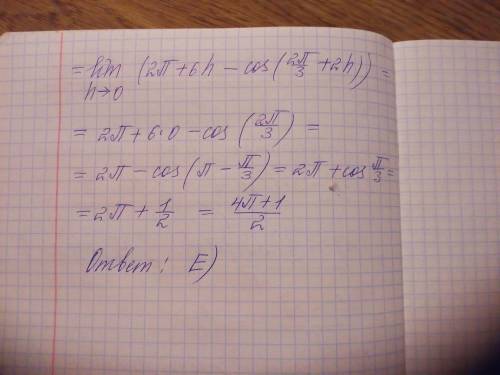 = lim (2π + 6h − cos(2π/3 + 2h)) =
h→0
= 2π + 6·0 − cos(2π/3) =
= 2π − cos(π − π/3) = 2π + cos π/3 =
= 2π + 1/2 = (4π+1)/2
Ответ: E)